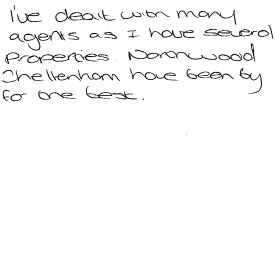 I've dealt with many
agents as I have several
properties. Northwood
Cheltenham have been by
far the best.